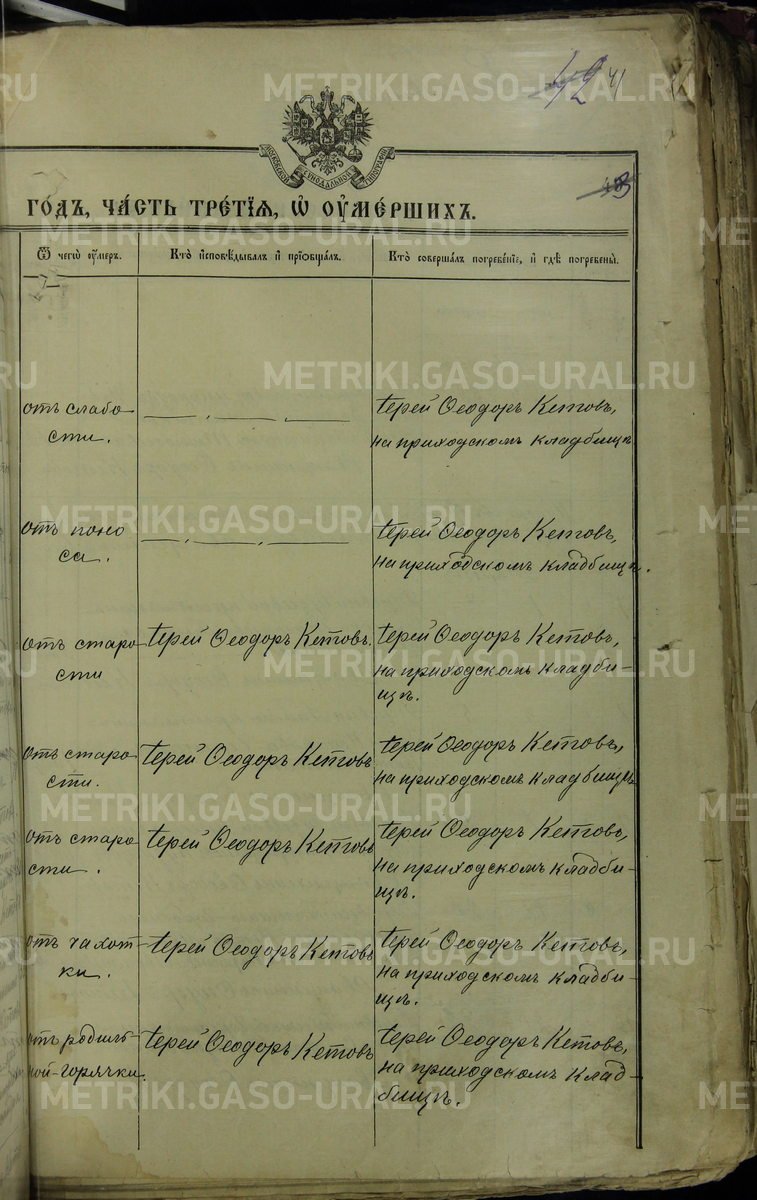 METRIKI.GASO-URAL.RU
42 41
МОСКОВСКОЙ СѴНОДАЛЬНОЙ ТИПОГРАФІИ
ГОДЪ, ЧАСТЬ ТРЕТІѦ, Ѡ ОУМЕРШИХЪ.
Ѿ чегѡ оумеръ.
Кто исповѣдывалъ и пріобщалъ.
Кто совершалъ погребеніе, и гдѣ погребены.
отъ слабо
сти.
Іерей Ѳеодоръ Кетовъ,
на приходскомъ кладбищѣ
отъ поно
са.
Іерей Ѳеодоръ Кетовъ,
на приходскомъ кладбищѣ.
отъ старо
сти
Іерей Ѳеодоръ Кетовъ.
Іерей Ѳеодоръ Кетовъ,
на приходскомъ кладби-
щѣ.
отъ старо
сти.
Іерей Ѳеодоръ Кетовъ
Іерей Ѳеодоръ Кетовъ,
на приходскомъ кладбищѣ
отъ старо
сти.
Іерей Ѳеодоръ Кетовъ
Іерей Ѳеодоръ Кетовъ,
на приходскомъ кладби-
щѣ.
отъ чахот-
ки.
Іерей Ѳеодоръ Кетовъ
Іерей Ѳеодоръ Кетовъ,
на приходскомъ кладби-
щѣ.
отъ родиль
ной-горячки.
Іерей Ѳеодоръ Кетовъ
Іерей Ѳеодоръ Кетовъ,
на приходскомъ клад-
бищѣ.